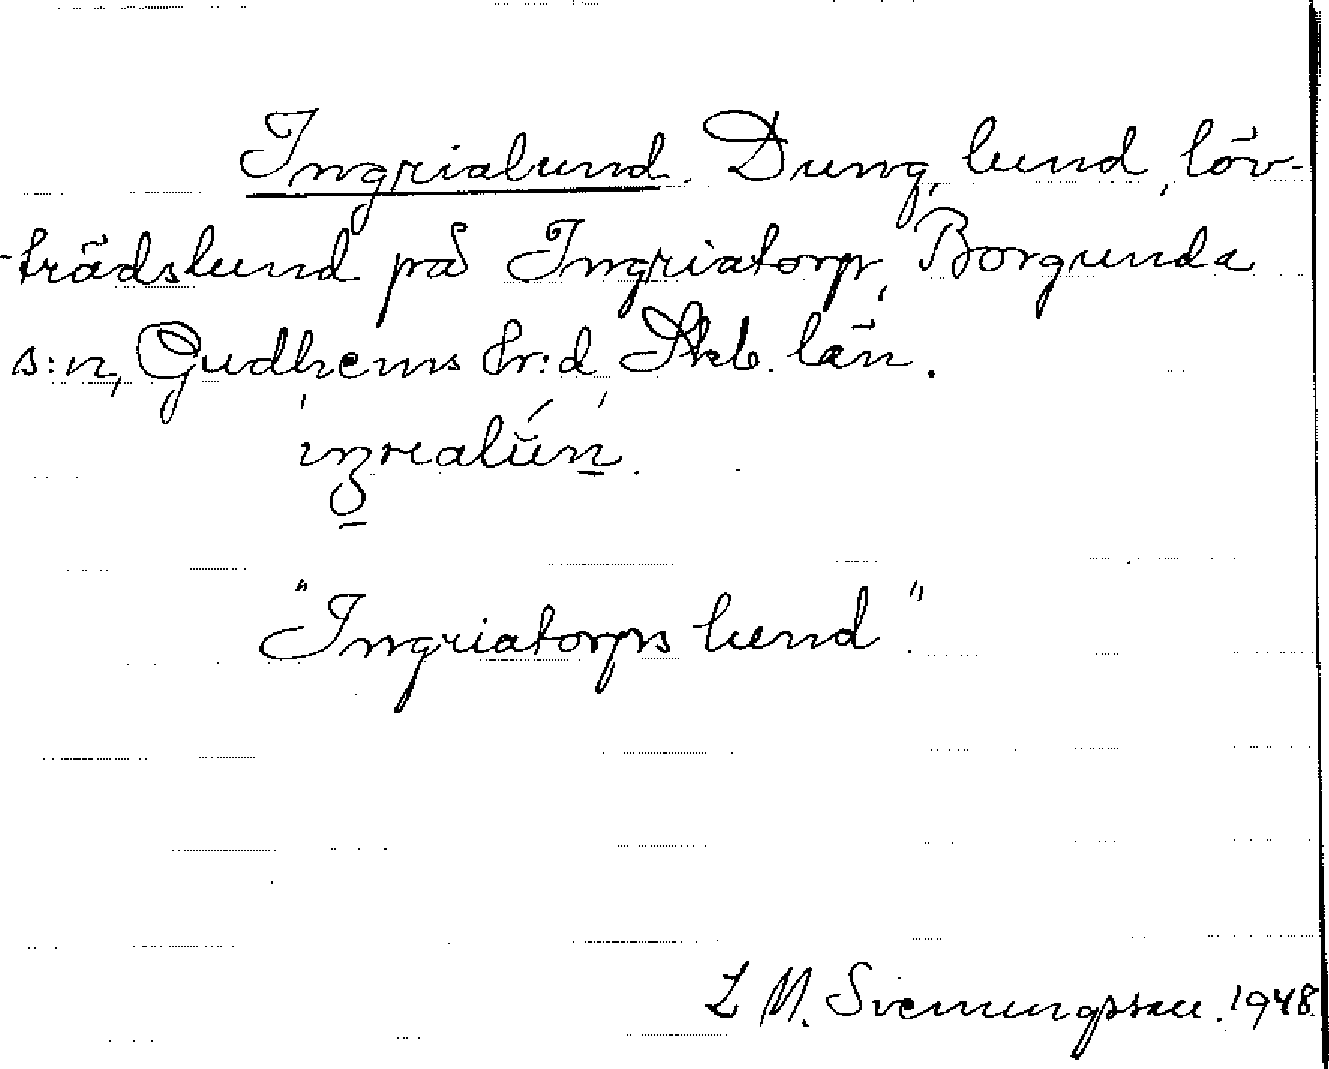 Ingrialund. Dung, lund, löv-
-trädslund på Ingriatorp, Borgunda
s:n, Gudhems hr:d Skb. län.
"Ingriatorps lund".
L M. Svenungsson. 1948